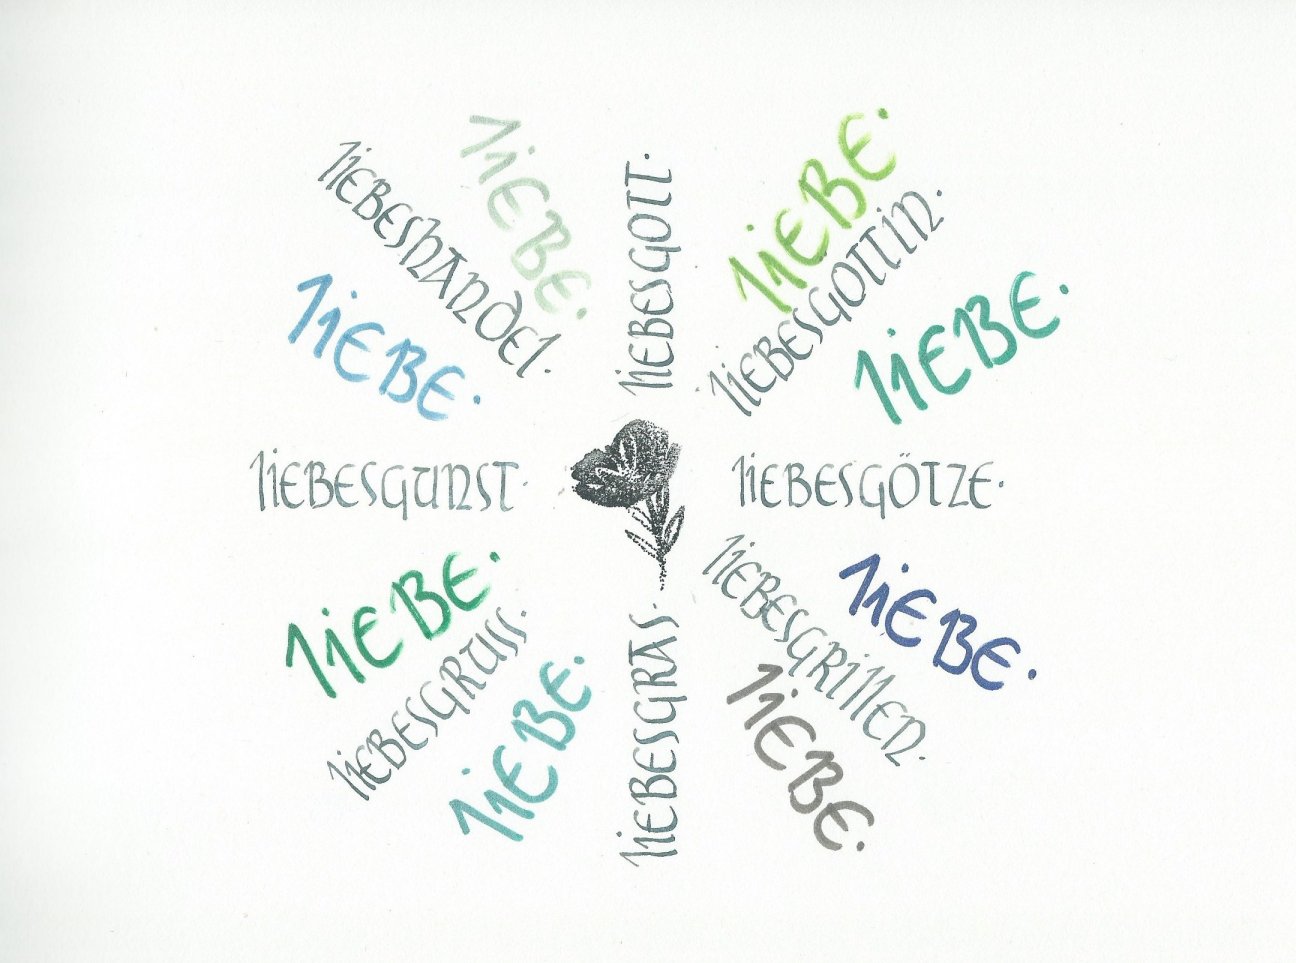 LIEBESGOTT.
LIEBE.
LIEBESGOTTIN.
LIEBE.
LIEBESGÖTZE.
LIEBE.
LIEBESGRILLEN.
LIEBE.
LIEBESGRAS.
LIEBE.
LIEBESGRUSS.
LIEBE.
LIEBESGUNST.
LIEBE.
LIEBESHANDEL.
LIEBE.